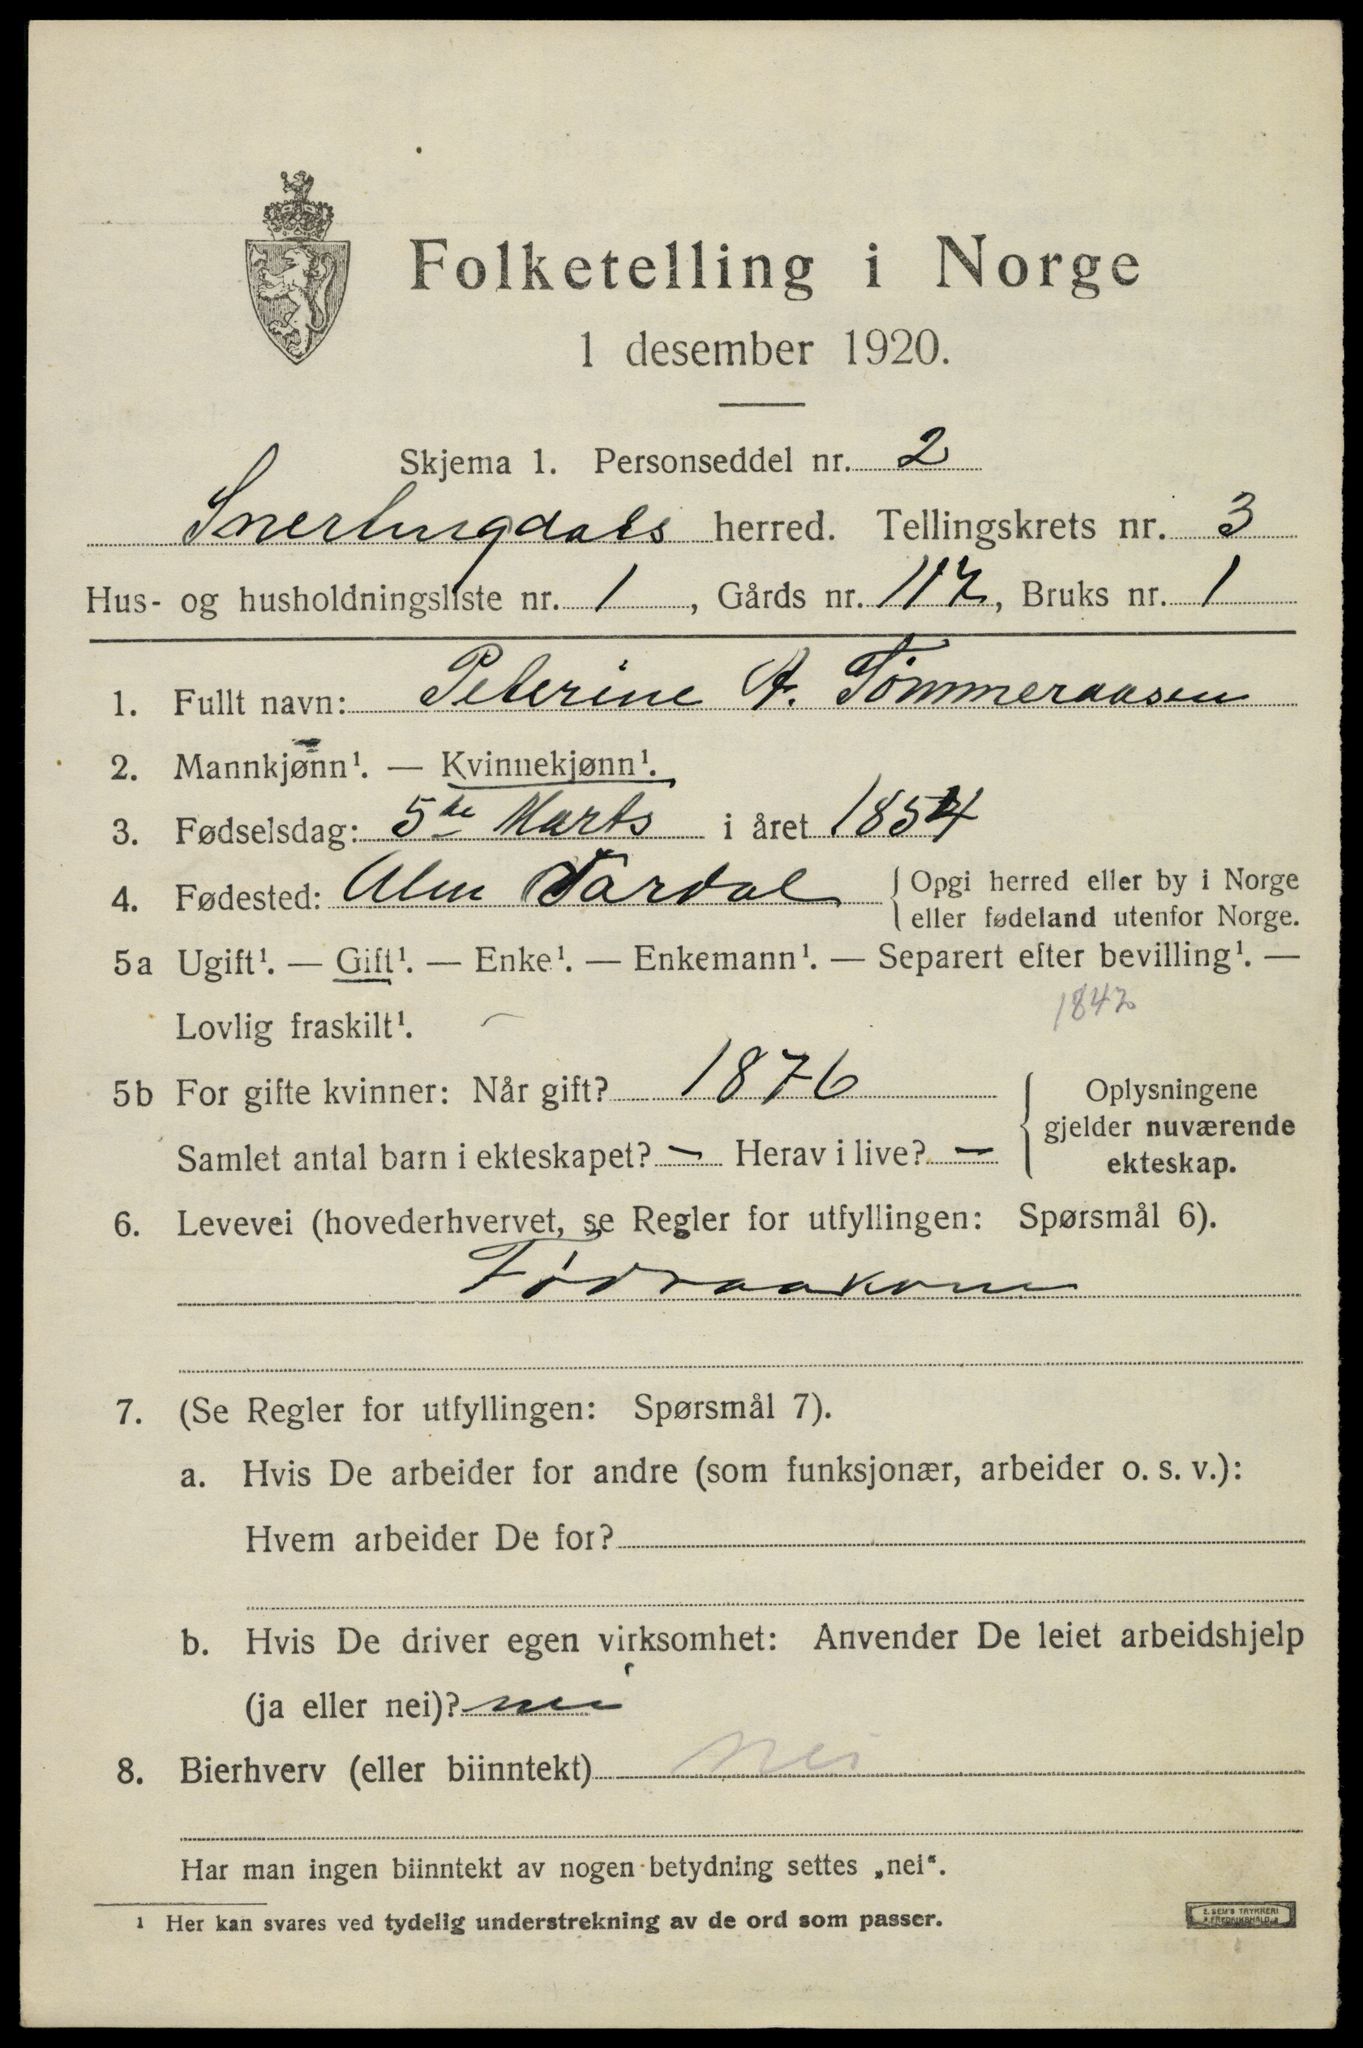 Folketelling i Norge
1 desember 1920.
Skjema 1. Personseddel nr. 2
herred. Tellingskrets nr. 3
Hus- og husholdningsliste nr. 1, Gårds nr. 117, Bruks nr. 1
1. Fullt navn: Peterine A. Tømmeraasen
2. Mannkjønn¹. — Kvinnekjønn¹.
3. Fødselsdag: 5te Marts i året 1854
4. Fødested: Alen { Opgi herred eller by i Norge
eller fødeland utenfor Norge.
5a Ugift¹. — Gift¹. — Enke¹. — Enkemann¹. — Separert efter bevilling¹. —
Lovlig fraskilt¹. 1847
5b For gifte kvinner: Når gift? 1876
Samlet antal barn i ekteskapet? — Herav i live? —
Oplysningene
gjelder nuværende
ekteskap.
6. Levevei (hovederhvervet, se Regler for utfyllingen: Spørsmål 6).
Fødraakone
7. (Se Regler for utfyllingen: Spørsmål 7).
a. Hvis De arbeider for andre (som funksjonær, arbeider o. s. v.):
Hvem arbeider De for?
b. Hvis De driver egen virksomhet: Anvender De leiet arbeidshjelp
(ja eller nei)? nei
8. Bierhverv (eller biinntekt) nei
Har man ingen biinntekt av nogen betydning settes „nei“.
¹ Her kan svares ved tydelig understrekning av de ord som passer.
E. SEM'S TRYKKERI
FREDRIKSHALD